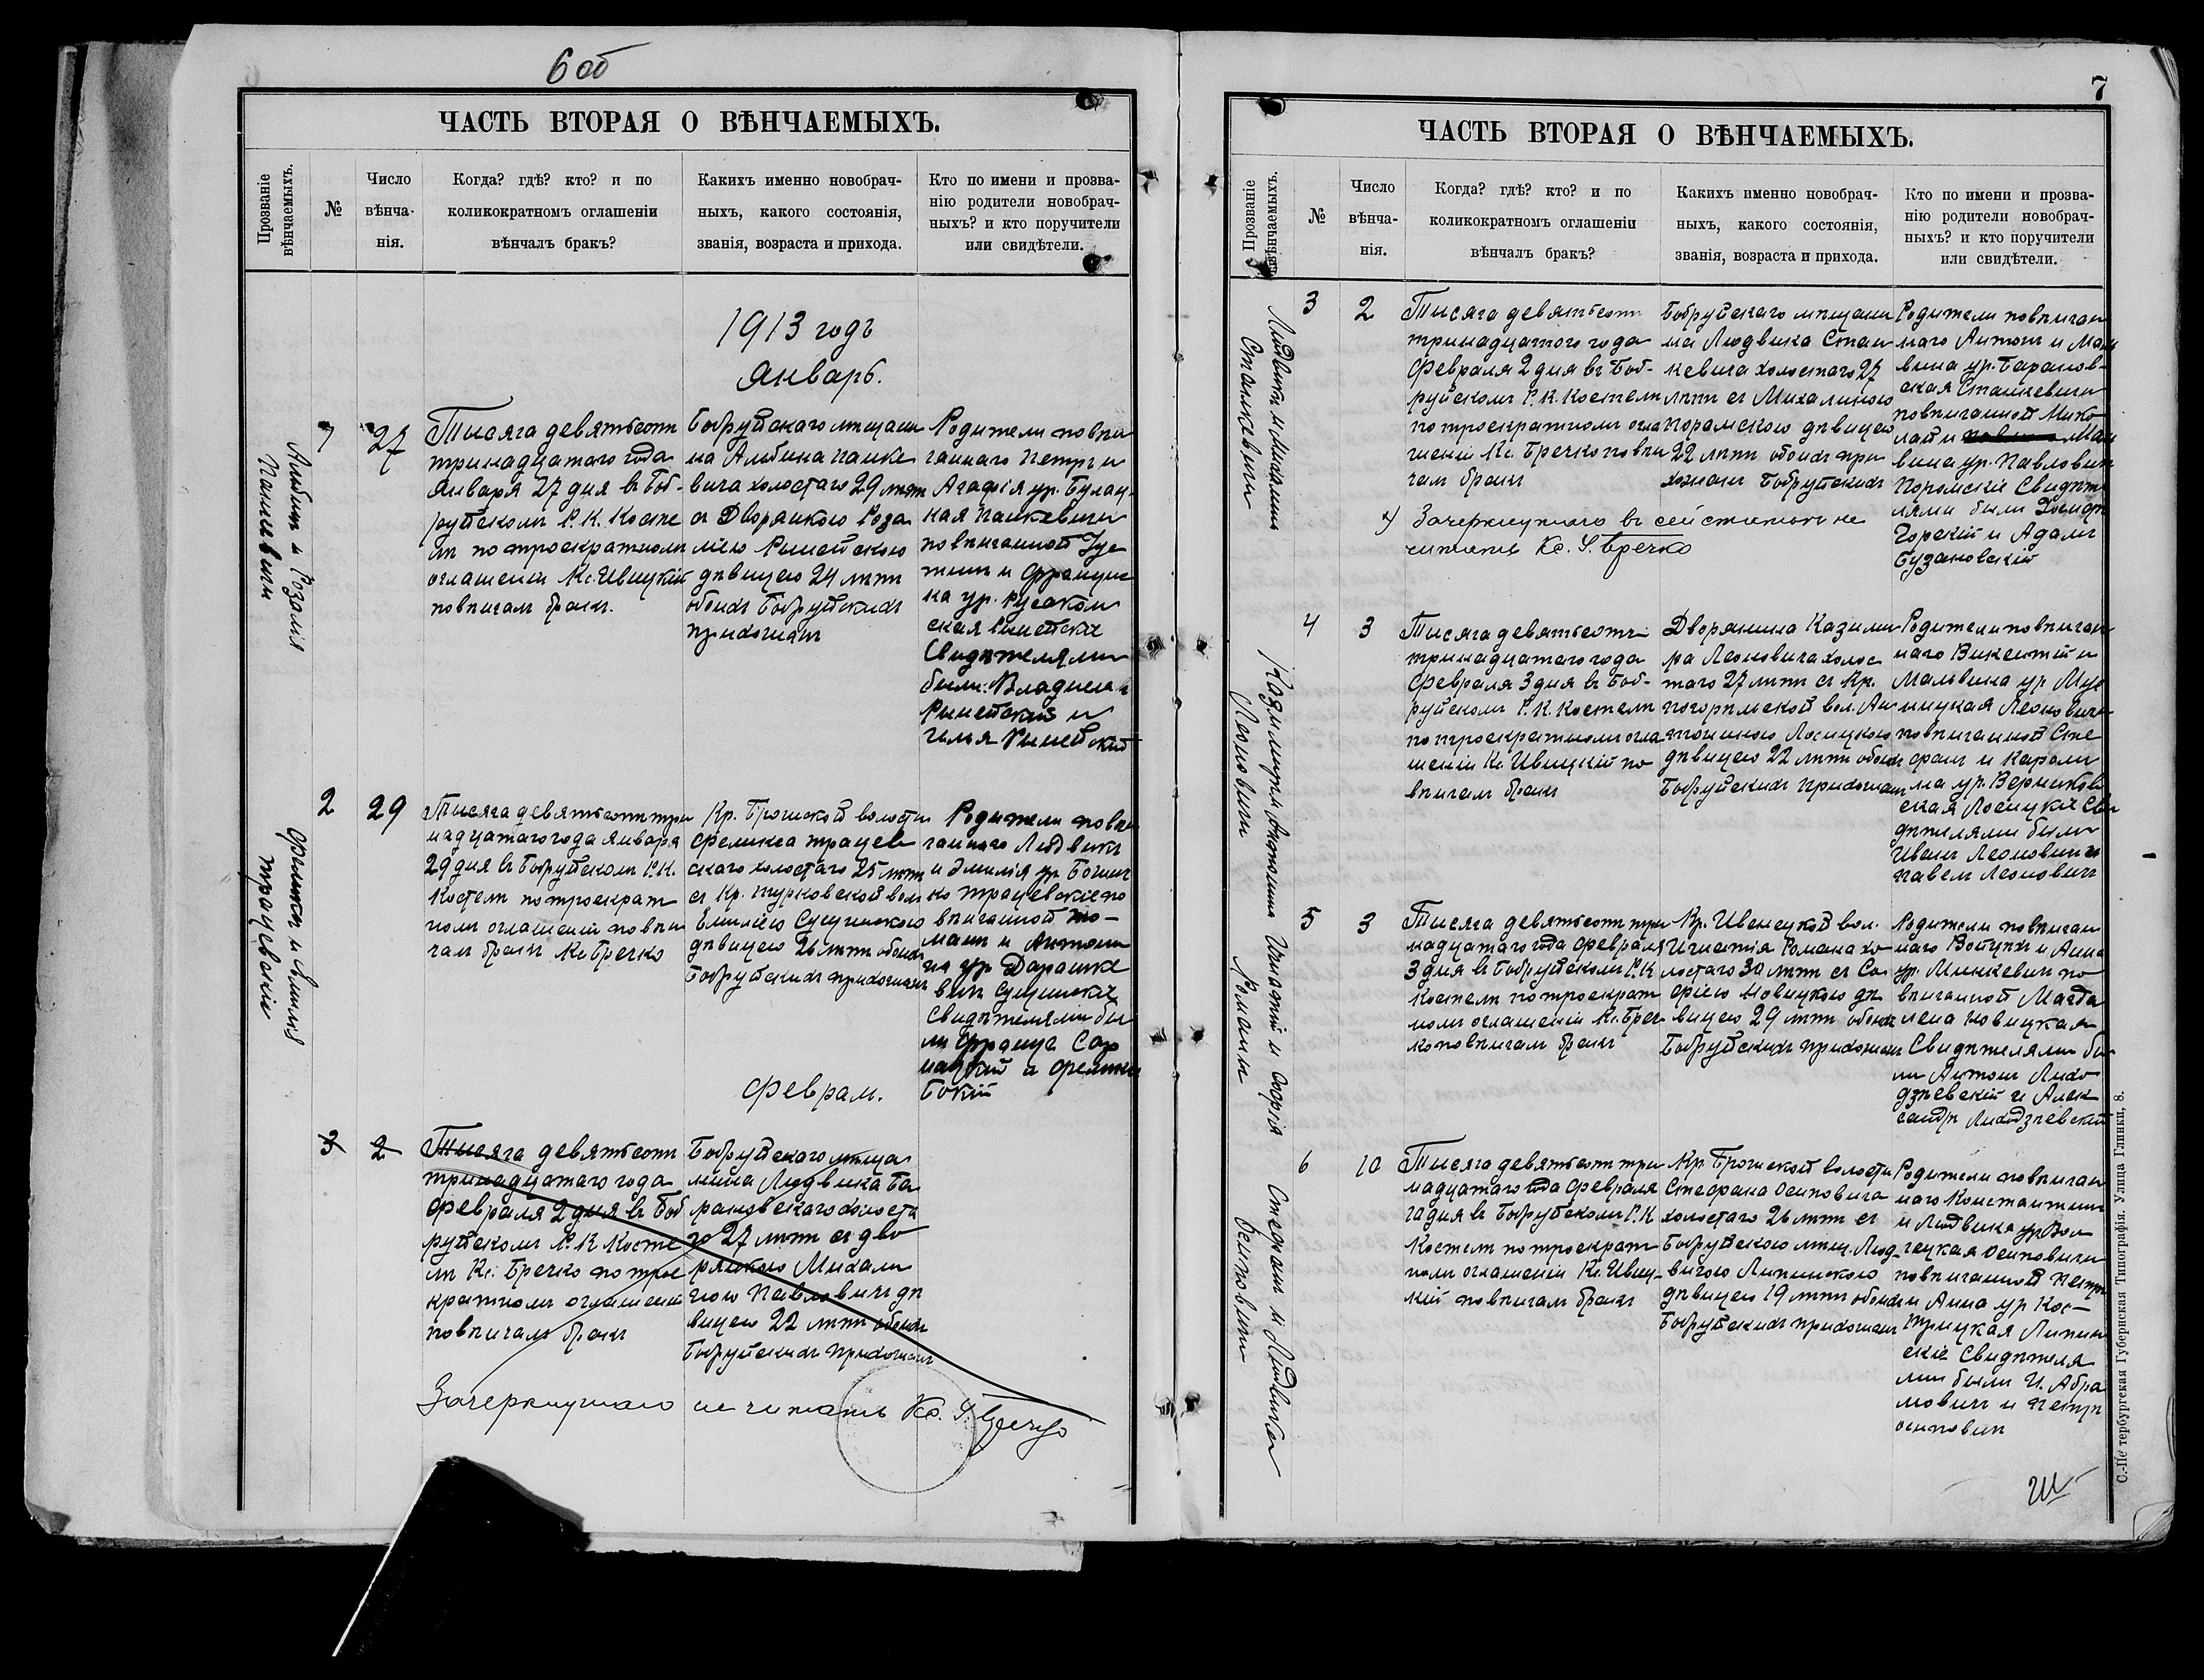 6 об
ЧАСТЬ ВТОРАЯ О ВѢНЧАЕМЫХЪ.
Прозваніе
вѣнчаемыхъ.
№
Число
вѣнча-
нія.
Когда? гдѣ? кто? и по
коликократномъ оглашеніи
вѣнчалъ бракъ?
Какихъ именно новобрач-
ныхъ, какого состоянія,
званія, возраста и прихода.
Кто по имени и прозва-
нію родители новобрач-
ныхъ? и кто поручители
или свидѣтели.
1913 годъ
Январь.
Альбинъ и Розалія
Панкевичи
1
27
Тысяча девятьсотъ
тринадцатаго года
Января 27 дня въ Боб-
руйскомъ Р. К. Косте
лѣ по троекратномъ
оглашеніи Кс. Ивицкій
повѣнчалъ бракъ.
Бобруйскаго мѣщани
на Альбина Панке
вича холостаго 29 лѣтъ
съ Дворянкою Роза
ліею
дѣвицею 24 лѣтъ
обоихъ Бобруйскихъ
прихожанъ
Родители повѣн
чаннаго Петръ и
Агафія ур.
кая Панкевичи
повѣнчанной Іус
тинъ и Францис
ка ур.
ская
Свидѣтелями
были: Владиславъ
и
Илья
Феликсъ и Эмилія
Трацевскіе
2
29
Тысяча девятьсотъ три
надцатаго года Января
29 дня въ Бобруйскомъ Р.К.
Костелѣ по троекрат
номъ оглашеніи повѣн
чалъ бракъ Кс. Гречко
Кр. Брожской волости
Феликса Трацев
скаго холостаго 25 лѣтъ
съ Кр. Турковской вол.
Емиліею Сущинскою
дѣвицею 26 лѣтъ обоихъ
Бобруйскихъ прихожанъ
Родители повѣн
чаннаго Людвикъ
и Эмилія ур.
ко Трацевскіе по
вѣнчанной То-
машъ и Антони
на ур. Дарашке
вичъ Сущинскіе
Свидѣтелями бы
ли Францъ
и Феликсъ
Бокій
Февраль.
3
2
Тысяча девятьсотъ
тринадцатаго года
Февраля 2 дня въ Боб
руйскомъ Р. К. Косте
лѣ Кс. Гречко по трое
кратномъ оглашеніи
повѣнчалъ бракъ
Бобруйскаго мѣща
нина Людвика Ба
рановскаго холоста
го 27 лѣтъ съ дво
рянкою Михали
ною Павловичъ дѣ
вицею 22 лѣтъ обоихъ
Бобруйскихъ прихожанъ
Зачеркнутаго не читать Кс. Гречко
7
ЧАСТЬ ВТОРАЯ О ВѢНЧАЕМЫХЪ.
Прозваніе
вѣнчаемыхъ.
№
Число
вѣнча-
нія.
Когда? гдѣ? кто? и по
коликократномъ оглашеніи
вѣнчалъ бракъ?
Какихъ именно новобрач-
ныхъ, какого состоянія,
званія, возраста и прихода.
Кто по имени и прозва-
нію родители новобрач-
ныхъ? и кто поручители
или свидѣтели.
Людвикъ и Михалина
Станкевичи
3
2
Тысяча девятьсотъ
тринадцатаго года
Февраля 2 дня въ Боб-
руйскомъ Р. К. Костелѣ
по троекратномъ огла
шеніи Кс. Гречко повѣн
чалъ бракъ
Бобруйскаго мѣщани
на Людвика Стан
кевича холостаго 27
лѣтъ съ Михалиною
Поромскою дѣвицею
22 лѣтъ обоихъ при
хожанъ Бобруйскихъ
Родители повѣнчан
наго Антонъ и Маль
вина ур. Баранов-
ская Станкевичи
повѣнчанной Нико
лай и Маль
вина ур. Павловичъ
Поромскіе Свидѣте
лями были
Горскій и Адамъ
Бузановскій
Зачеркнутаго въ сей статьѣ не
читать Кс. Гречко
Казимиръ и Антонина
Леоновичи
4
3
Тысяча девятьсотъ
тринадцатаго года
Февраля 3 дня въ Боб-
руйскомъ Р. К. Костелѣ
по троекратномъ огла
шеніи Кс. Ивицкій по
вѣнчалъ бракъ
Дворянина Казими
ра Леоновича холос
таго 27 лѣтъ съ Кр.
Погорѣльской вол. Ан
тониною Лосицкою
дѣвицею 22 лѣтъ обоихъ
Бобруйскихъ прихожанъ
Родители повѣнчан
наго Викентій и
Мальвина ур.
Леоновичи
повѣнчанной Сте
фанъ и Кароли
на ур. Верниковс
ская Лосицкіе Сви
дѣтелями были
Иванъ Леоновичъ и
Павелъ Леоновичъ
Игнатій и Софія
Романы
5
3
Тысяча девятьсотъ три
надцатаго года Февраля
3 дня въ Бобруйскомъ Р. К
Костелѣ по троекрат
номъ оглашеніи Кс. Греч
ко повѣнчалъ бракъ
Кр. Ивенецкой вол.
Игнатія Романа хо
лостаго 30 лѣтъ съ Со
фіею Новицкою дѣ
вицею 29 лѣтъ обоихъ
Бобруйскихъ прихожанъ
Родители повѣнчан
наго Войцѣхъ и Анна
ур. Минкевичъ по
вѣнчанной Магда
лена Новицкая
Свидѣтелями бы
ли Антонъ Лихо
дзѣевскій и Алек
сандръ Лиходзѣевскій
Стефанъ и Людвика
Осиповичи
6
10
Тысяча девятьсотъ три
надцатаго года Февраля
10 дня въ Бобруйскомъ Р. К
Костелѣ по троекрат
номъ оглашеніи Кс. Ивиц-
кій повѣнчалъ бракъ
Кр. Брожской волости
Стефана Осиповича
холостаго 26 лѣтъ съ
Бобруйскою мѣщ. Люд
викою Липинскою
дѣвицею 19 лѣтъ обоихъ
Бобруйскихъ прихожанъ
Родители повѣнчан
наго Константинъ
и Людвика ур. Вол
чецкая Осиповичи
повѣнчанной Петръ
и Анна ур Кос-
трицкая Липин
скіе Свидѣтеля
ми были И. Абра
мовичъ и Петръ
Осиповичъ
С.-Петербургская Губернская Типографія. Улица Глинки, 8.